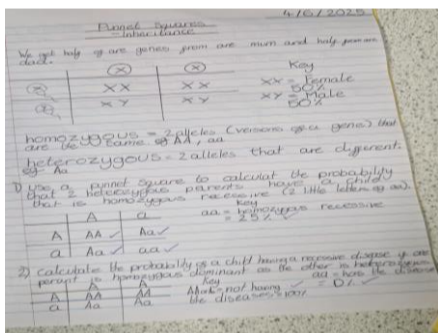 4/6/2025
Punnet Squares
- Inheritance
We get half of are genes from are mum and half from are
dad.
X X Key
X XX XX XX = Female
50%
XY XY XY = Male
50%
homozygous = 2 alleles (versions of a gene) that
are the same eg AA, aa
heterozygous = 2 alleles that are different
eg Aa
1) Use a punnet square to calculat the probability
that 2 heterozygous parents have a child
that is homozygous recessive (2 little letters eg aa).
A a Key
aa = homozygous recessive
A AA Aa = 25%
a Aa aa
2) Calculate the probability of a child having a recessive disease if one
parent is homozygous dominant as the other is heterozygous
A A Key aa = has the disease
A AA AA not having = 0%
a Aa Aa the disease 100%